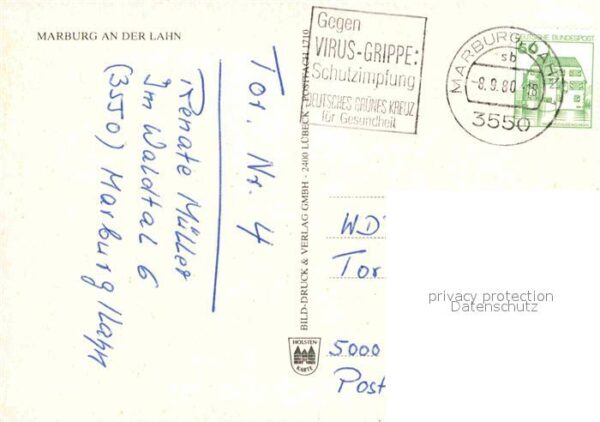 MARBURG AN DER LAHN
Tor. Nr. 4
Renate Müller
Im Waldtal 6
(3550) Marburg/Lahn
BILD-DRUCK & VERLAG GMBH · 2400 LÜBECK · POSTFACH 1710
HOLSTEN
KARTE
Gegen
VIRUS-GRIPPE:
Schutzimpfung
DEUTSCHES GRÜNES KREUZ
für Gesundheit
MARBURG, LAHN
sb
-8.9.80-18
3550
50
DEUTSCHE BUNDESPOST
WD
Tor
5000
Post
privacy protection
Datenschutz